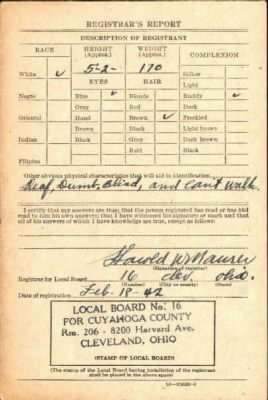 REGISTRAR'S REPORT
DESCRIPTION OF REGISTRANT
RACE HEIGHT (Approx.) WEIGHT (Approx.) COMPLEXION
White ✓ 5-2- 170 Sallow
EYES HAIR Light
Negro Blue ✓ Blonde Ruddy ✓
Gray Red Dark
Oriental Hazel Brown ✓ Freckled
Brown Black Light brown
Indian Black Gray Dark brown
Bald Black
Filipino
Other obvious physical characteristics that will aid in identification
Deaf, Dumb, Blind, and Can't walk.
I certify that my answers are true; that the person registered has read or has had read to him his own answers; that I have witnessed his signature or mark and that all of his answers of which I have knowledge are true, except as follows:
Harold W
(Signature of registrar)
Registrar for Local Board 16 Clev. Ohio.
(Number) (City or county) (State)
Date of registration Feb-18-42
LOCAL BOARD No. 16
FOR CUYAHOGA COUNTY
Rm. 206 - 8200 Harvard Ave.
CLEVELAND, OHIO
(STAMP OF LOCAL BOARD)
(The stamp of the Local Board having jurisdiction of the registrant shall be placed in the above space)